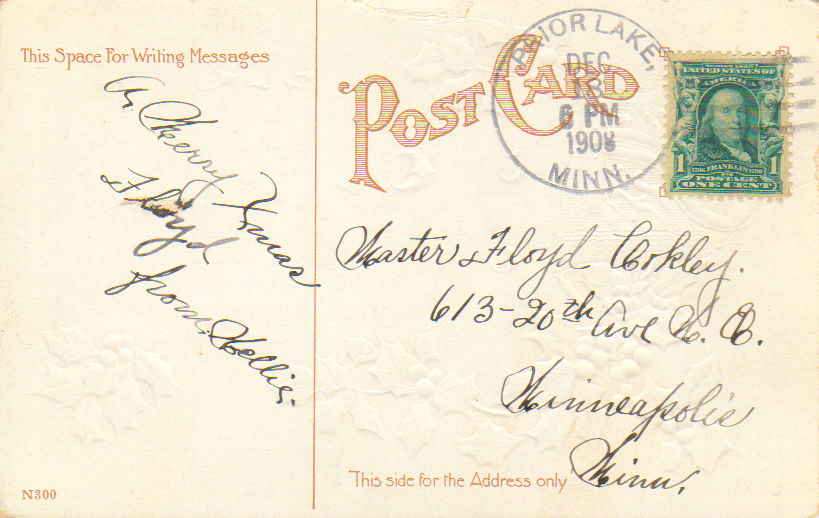 This Space For Writing Messages
A Merry Xmas
Floyd
from Nellie.
N300
POST CARD
PRIOR LAKE,
DEC
6 PM
1908
MINN.
UNITED STATES OF
AMERICA
1 1
FRANKLIN
POSTAGE
ONE CENT
Master Floyd Cokley.
613-20th Ave N. E.
Minneapolis
Minn.
This side for the Address only